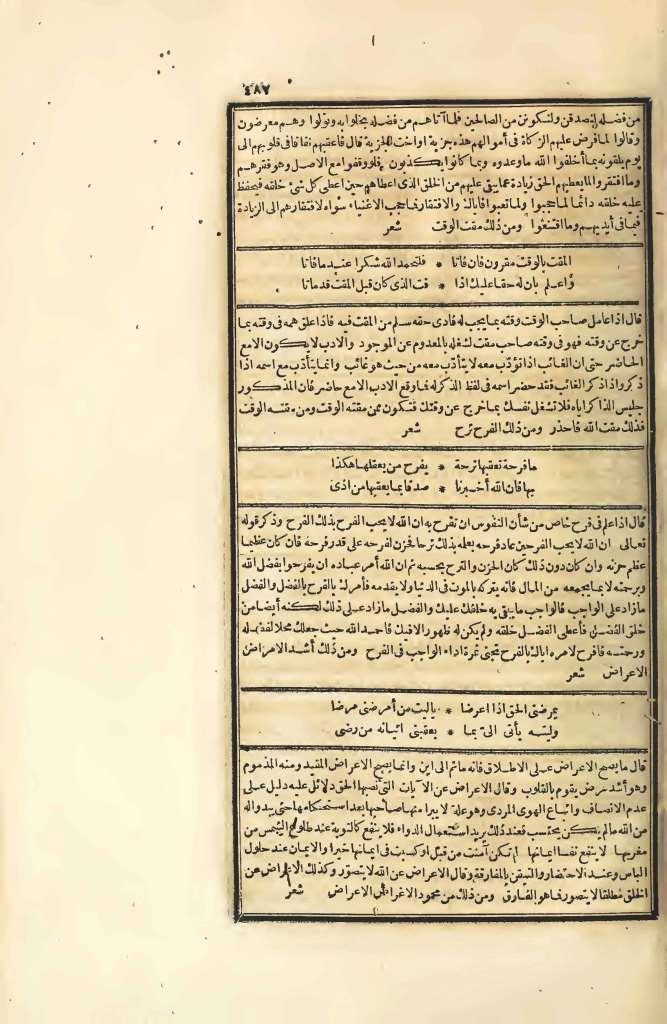 ٤٨٧
من فضله لنصدقن ولنكونن من الصالحين فلما آتاهم من فضله بخلوا به وتولوا وهم معرضون
وقالوا لما فرض عليهم الزكاة في أموالهم هذه جزية أو أخت الجزية قال فأعقبهم نفاقا في قلوبهم الى
يوم يلقونه بما أخلفوا الله ما وعدوه وبما كانوا يكذبون فلو وقفوا مع الاصل وهو فقرهم
وما افتقروا لما يعطيهم الحق زيادة عما يبقى عليهم من الخلق الذي اعطاهم حين اعطى كل شئ خلقه فيحفظ
عليه خلقه دائما لما حجبوا ولما تعبوا فاياك والافتقار فما حجب الاغنياء سواه لافتقارهم الى الزيادة
فيما في أيديهم وما اقتنعوا ومن ذلك مقت الوقت شعر
المقت بالوقت مقرون فان فاتا * فلتحمد الله شكرا عندما فاتا
واعلم بان له حقا عليك اذا * فت الذي كان قبل المقت قد ماتا
قال اذا عامل صاحب الوقت وقته بما يجب له فادى حقه سلم من المقت فيه فاذا علق همه في وقته بما
خرج عن وقته فهو في وقته صاحب مقت لشغله بالمعدوم عن الموجود والادب لا يكون الا مع
الحاضر حتى ان الغائب اذا تؤدب معه لا يتأدب معه من حيث هو غائب وانما يتأدب مع اسمه اذا
ذكر واذا ذكر الغائب فقد حضر اسمه في لفظ الذاكر له فما وقع الادب الا مع حاضر فان المذكور
جليس الذاكر اياه فلا تشغل نفسك بما خرج عن وقتك فتكون ممن مقته الوقت ومن مقته الوقت
فذلك مقت الله فاحذر ومن ذلك الفرح ترح شعر
ما فرحة تعقبها ترحة * يفرح من يعقلها هكذا
بها فان الله أخبرنا * صدقا بما يعقبها من اذى
قال اذا علم في فرح خاص من شأن النفوس ان تفرح به ان الله لا يحب الفرح بذلك الفرح وذكر قوله
تعالى ان الله لا يحب الفرحين عاد فرحه بعلمه بذلك ترحا فحزن لفرحه على قدر فرحه فان كان عظيما
عظم حزنه وان كان دون ذلك كان الحزن والترح بحسبه ثم ان الله أمر عباده ان يفرحوا بفضل الله
وبرحمته لا بما يجمعه من المال فانه يتركه بالموت في الدنيا ولا يقدمه فأمرك بالفرح بالفضل والفضل
ما زاد على الواجب فالواجب ما يبقى به خلقك عليك والفضل ما زاد على ذلك لكنه أيضا من
خلق الفضل فأعطى الفضل خلقه ولم يكن له ظهور الا فيك فاحمد الله حيث جعلك محلا لفضله
ورحمته فافرح لامره اياك بالفرح تجنى ثمرة اداء الواجب في الفرح ومن ذلك أشد الامراض
الاعراض شعر
يمرضني الحق اذا اعرضا * يا ليت من أمرضني مرضا
وليته يأتى الى بما * يعقبني اتيانه من رضى
قال ما يصح الاعراض على الاطلاق فانه ما ثم الى اين وانما يصح الاعراض المقيد ومنه المذموم
وهو أشد مرض يقوم بالقلوب وقال الاعراض عن الآيات التي نصبها الحق دلائل عليه دليل على
عدم الانصاف واتباع الهوى المردى وهو علة لا يبرأ منها صاحبها بعد استحكامها حتى يبدو له
من الله ما لم يكن يحتسب فعند ذلك يريد استعمال الدواء فلا ينفع كالتوبة عند طلوع الشمس من
مغربها لا ينفع نفسا ايمانها لم تكن آمنت من قبل او كسبت في ايمانها خيرا والايمان عند حلول
الباس وعند الاحتضار والتيقن بالمفارقة وقال الاعراض عن الله لا يتصور وكذلك الاعراض عن
الخلق مطلقا لا يتصور فما هو الفارق ومن ذلك من محمود الاغراض الاعراض شعر